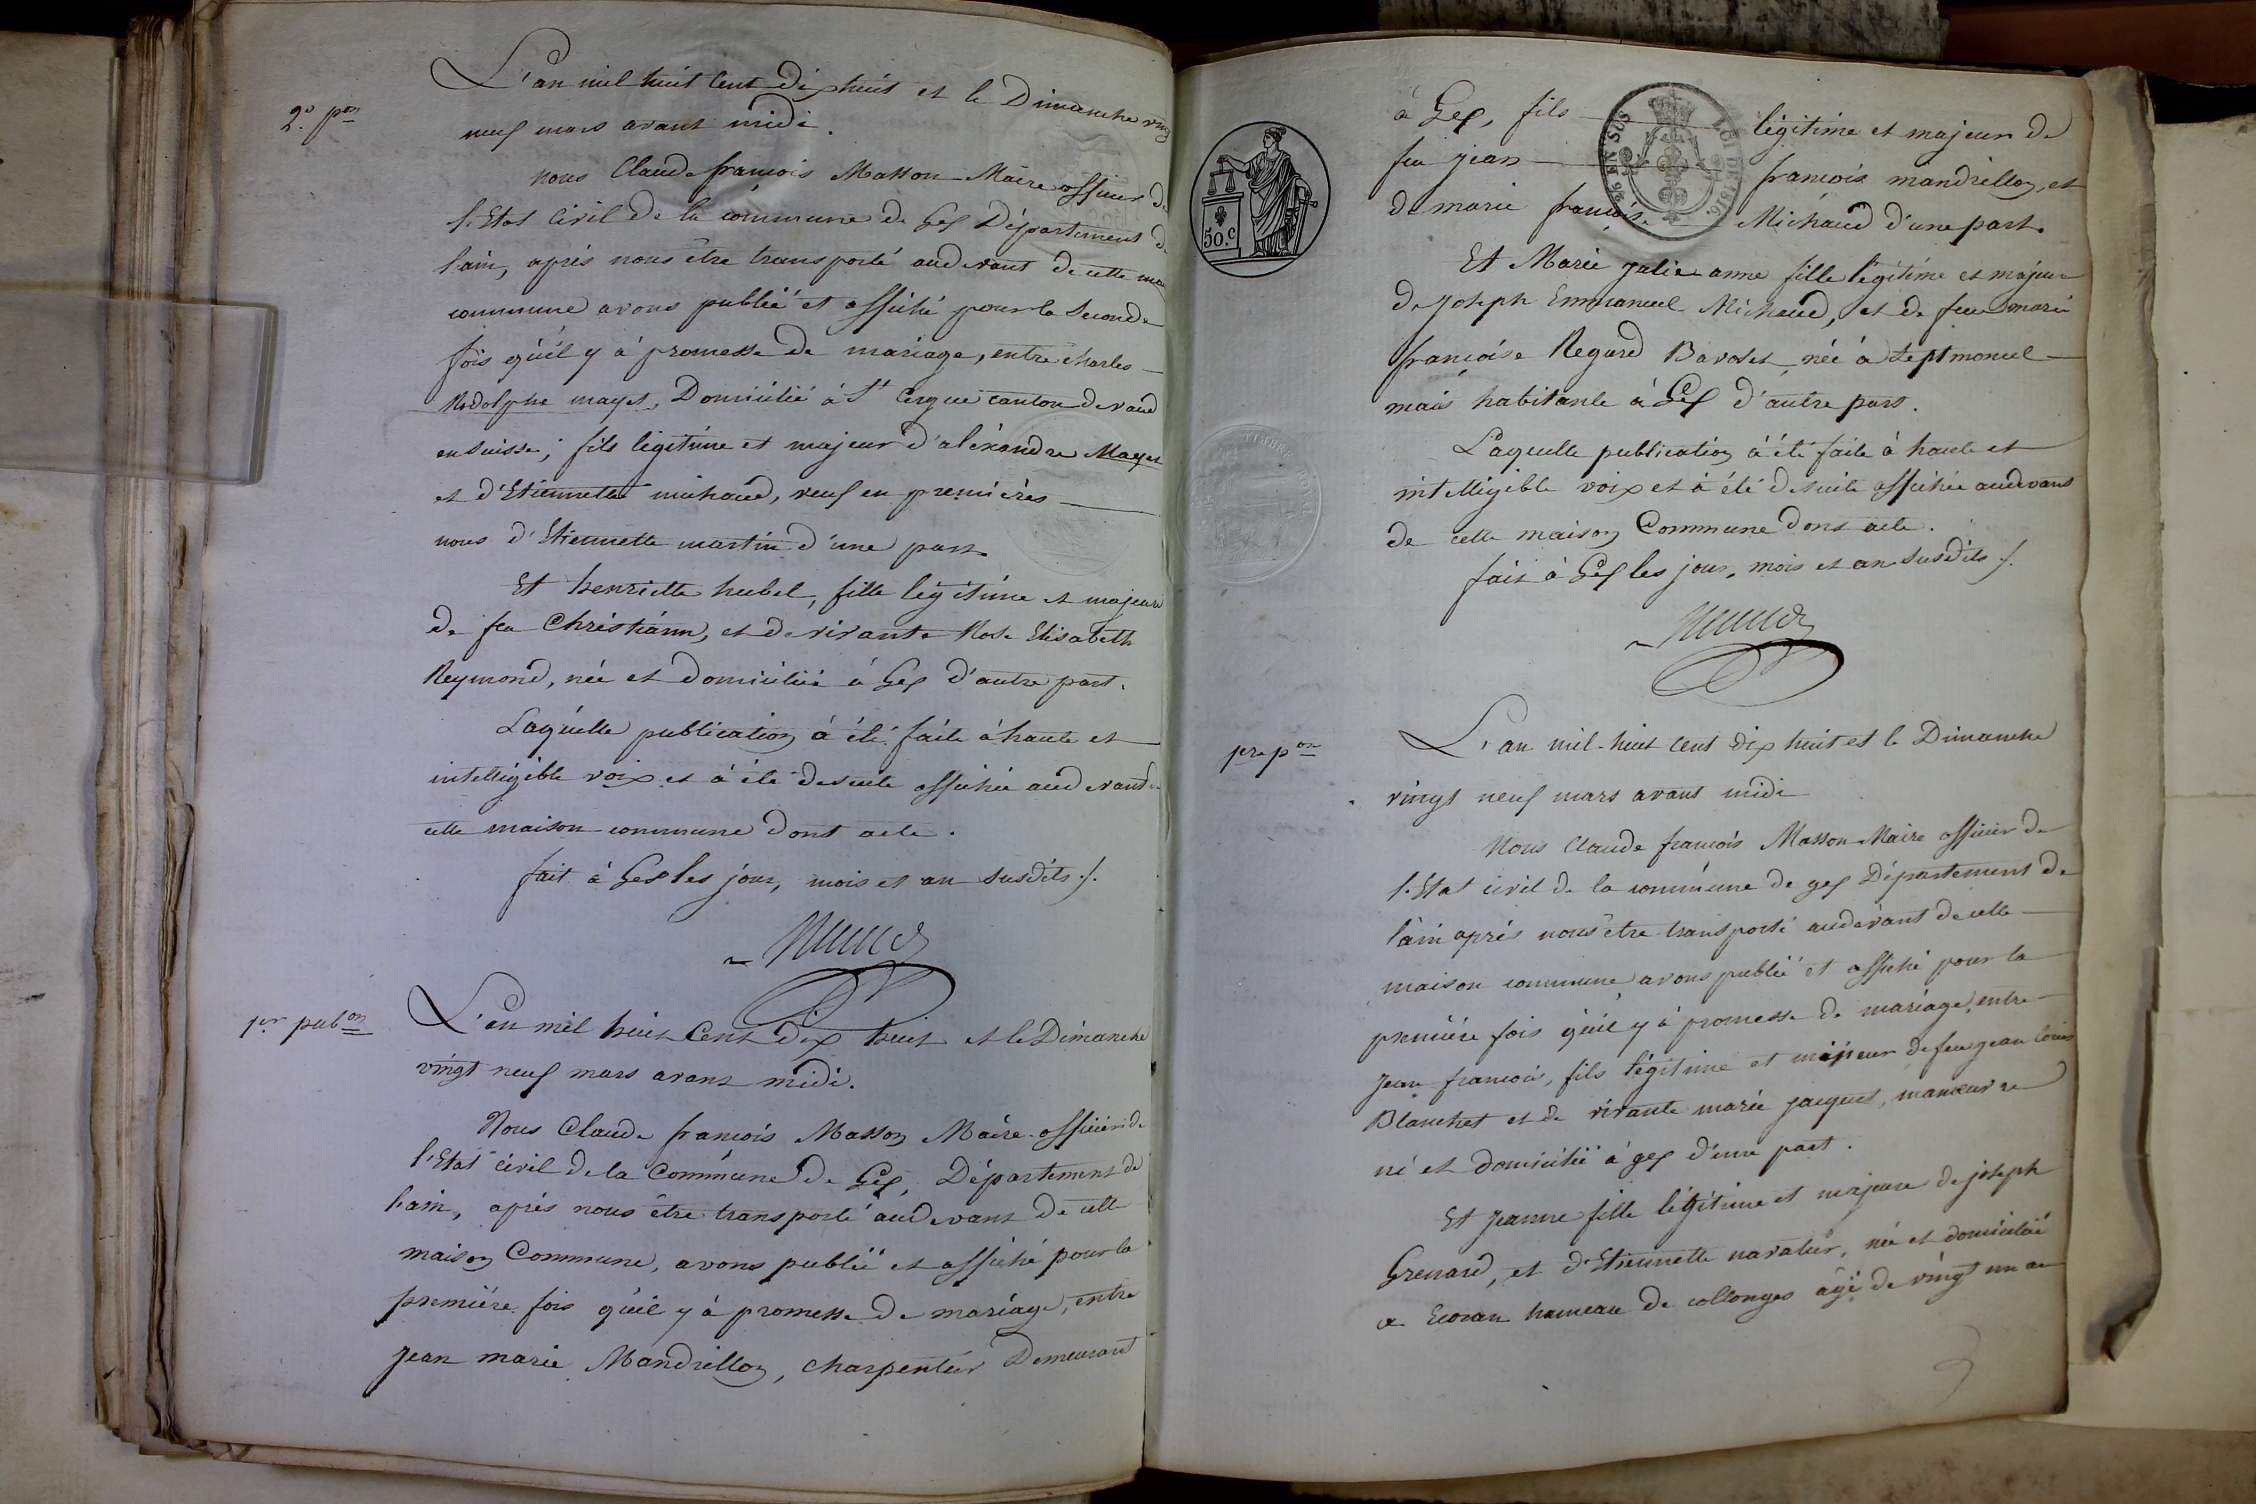 2.e p.on
L'an mil huit Cent Dix huit et le Dimanche vingt
neuf mars avant midi.
nous Claude françois Masson Maire officier de
l'Etat Civil de la commune de Gex Département de
l'ain, après nous être transporté audevant de cette
commune avons publié et affiché pour la Seconde
fois qu'il y à promesse de mariage, entre Charles
Rodolphe mayet, Domicilié à St Cergue canton de vaud
en Suisse; fils légitime et majeur d'aléxandre Mayet
et d'Etiennette michaud, veuf en premières
nous d'Etiennette martin d'une part.
Et henriette hubel, fille légitime et majeure
de feu Christiann, et de vivante Rose Elisabeth
Reymond, née et Domiciliée à Gex d'autre part.
Laquelle publication à été faite à haute et
intelligible voix et à été de suite affichée audevant de
cette maison commune dont acte.
fait à Gex les jour, mois et an susdits ./.
1.er pub.on
L'an mil huit Cent dix huit et le Dimanche
vingt neuf mars avant midi.
Nous Claude françois Masson Maire officier de
l'Etat civil de la Commune de Gex, Département de
l'ain, après nous être transporté audevant de cette
maison Commune, avons publié et affiché pour la
première fois qu'il y à promesse de mariage, entre
Jean marie Mandrillon, Charpentier Demeurant
50.c
26 EN SUS
LOI DE 1816.
TIMBRE ROYAL
à Gex, fils légitime et majeur de
feu jean françois mandrillon, et
de marie françoise Michaud d'une part.
Et Marie Julie anne fille légitime et majeure
de Joseph Emmanuel Michaud, et de feue marie
françoise Regard Bavoset née à Septmoncel
mais habitante à Gex d'autre part.
Laquelle publication à été faite à haute et
intelligible voix et à été de suite affichée audevant
de cette maison Commune dont acte.
fait à Gex les jour, mois et an susdits ./.
1re p.on
L'an mil-huit cent dix huit et le Dimanche
vingt neuf mars avant midi
Nous Claude françois Masson Maire officier de
l'Etat civil de la commune de gex Département de
l'ain après nous être transporté audevant de cette
maison commune avons publié et affiché pour la
première fois qu'il y à promesse de mariage, entre
Jean françois, fils légitime et majeur de feu jean louis
Blanchet et de vivante marie jacquet, manœuvre
né et domicilié à gex d'une part.
Et Jeanne fille légitime et majeure de joseph
Grenard, et d'Etiennette navatier, née et domiciliée
a Ecoran hameau de collonges âgé de vingt un an